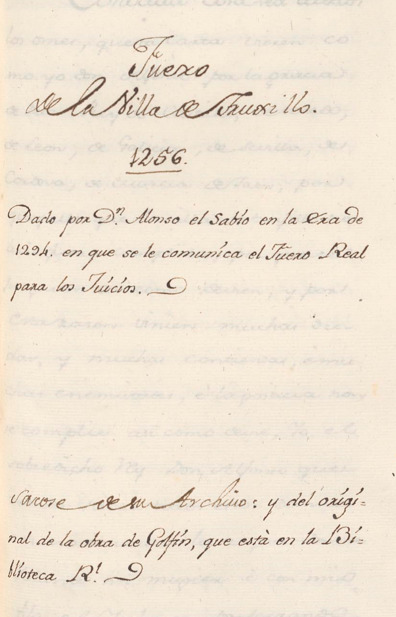 Fuero
de la Villa de Truxillo.
1256.
Dado por D.ⁿ Alonso el Sabio en la era de
1294. en que se le comunica el Fuero Real
para los Juicios.
Sacose de su Archivo: y del origi-
nal de la obra de Golfin, que està en la Bi-
blioteca R.ˡ